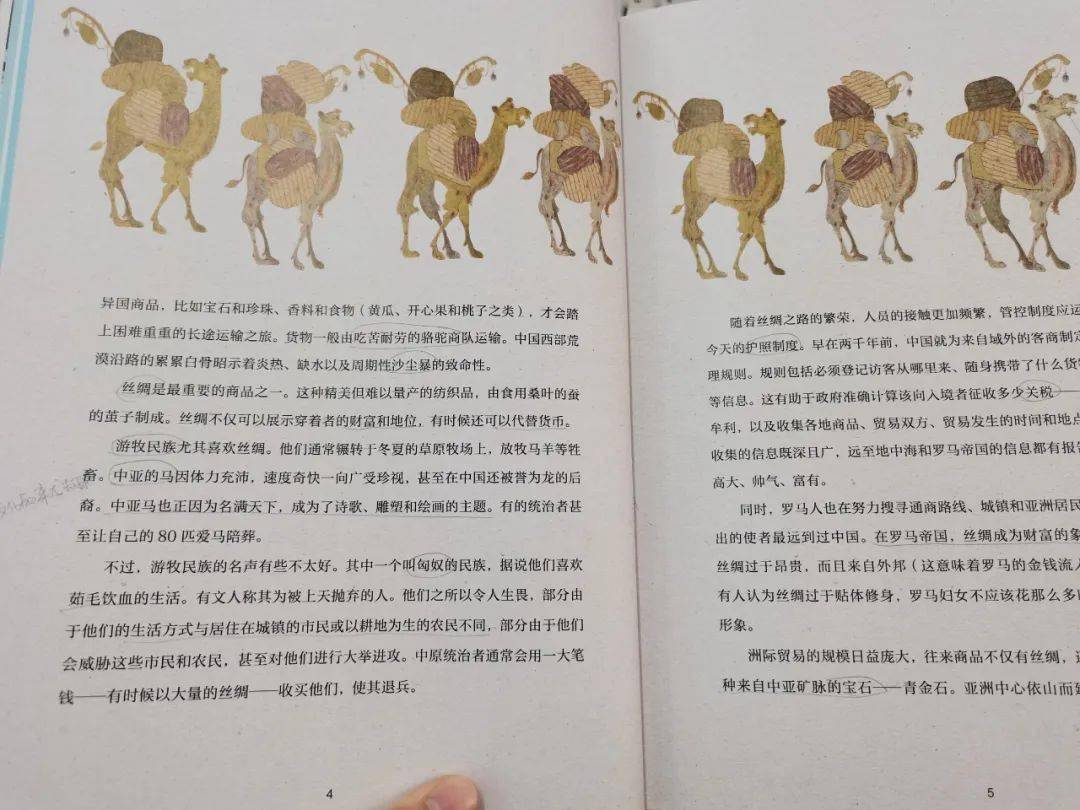 异国商品，比如宝石和珍珠、香料和食物（黄瓜、开心果和桃子之类），才会踏
上困难重重的长途运输之旅。货物一般由吃苦耐劳的骆驼商队运输。中国西部荒
漠沿路的累累白骨昭示着炎热、缺水以及周期性沙尘暴的致命性。
丝绸是最重要的商品之一。这种精美但难以量产的纺织品，由食用桑叶的蚕
的茧子制成。丝绸不仅可以展示穿着者的财富和地位，有时候还可以代替货币。
游牧民族尤其喜欢丝绸。他们通常辗转于冬夏的草原牧场上，放牧马羊等牲
畜。中亚的马因体力充沛，速度奇快一向广受珍视，甚至在中国还被誉为龙的后
裔。中亚马也正因为名满天下，成为了诗歌、雕塑和绘画的主题。有的统治者甚
至让自己的 80 匹爱马陪葬。
不过，游牧民族的名声有些不太好。其中一个叫匈奴的民族，据说他们喜欢
茹毛饮血的生活。有文人称其为被上天抛弃的人。他们之所以令人生畏，部分由
于他们的生活方式与居住在城镇的市民或以耕地为生的农民不同，部分由于他们
会威胁这些市民和农民，甚至对他们进行大举进攻。中原统治者通常会用一大笔
钱——有时候以大量的丝绸——收买他们，使其退兵。
4
随着丝绸之路的繁荣，人员的接触更加频繁，管控制度应运
今天的护照制度。早在两千年前，中国就为来自域外的客商制定
理规则。规则包括必须登记访客从哪里来、随身携带了什么货
等信息。这有助于政府准确计算该向入境者征收多少关税——
牟利，以及收集各地商品、贸易双方、贸易发生的时间和地点
收集的信息既深且广，远至地中海和罗马帝国的信息都有报告
高大、帅气、富有。
同时，罗马人也在努力搜寻通商路线、城镇和亚洲居民
出的使者最远到过中国。在罗马帝国，丝绸成为财富的象
丝绸过于昂贵，而且来自外邦（这意味着罗马的金钱流入
有人认为丝绸过于贴体修身，罗马妇女不应该花那么多
形象。
洲际贸易的规模日益庞大，往来商品不仅有丝绸，
种来自中亚矿脉的宝石——青金石。亚洲中心依山而
5